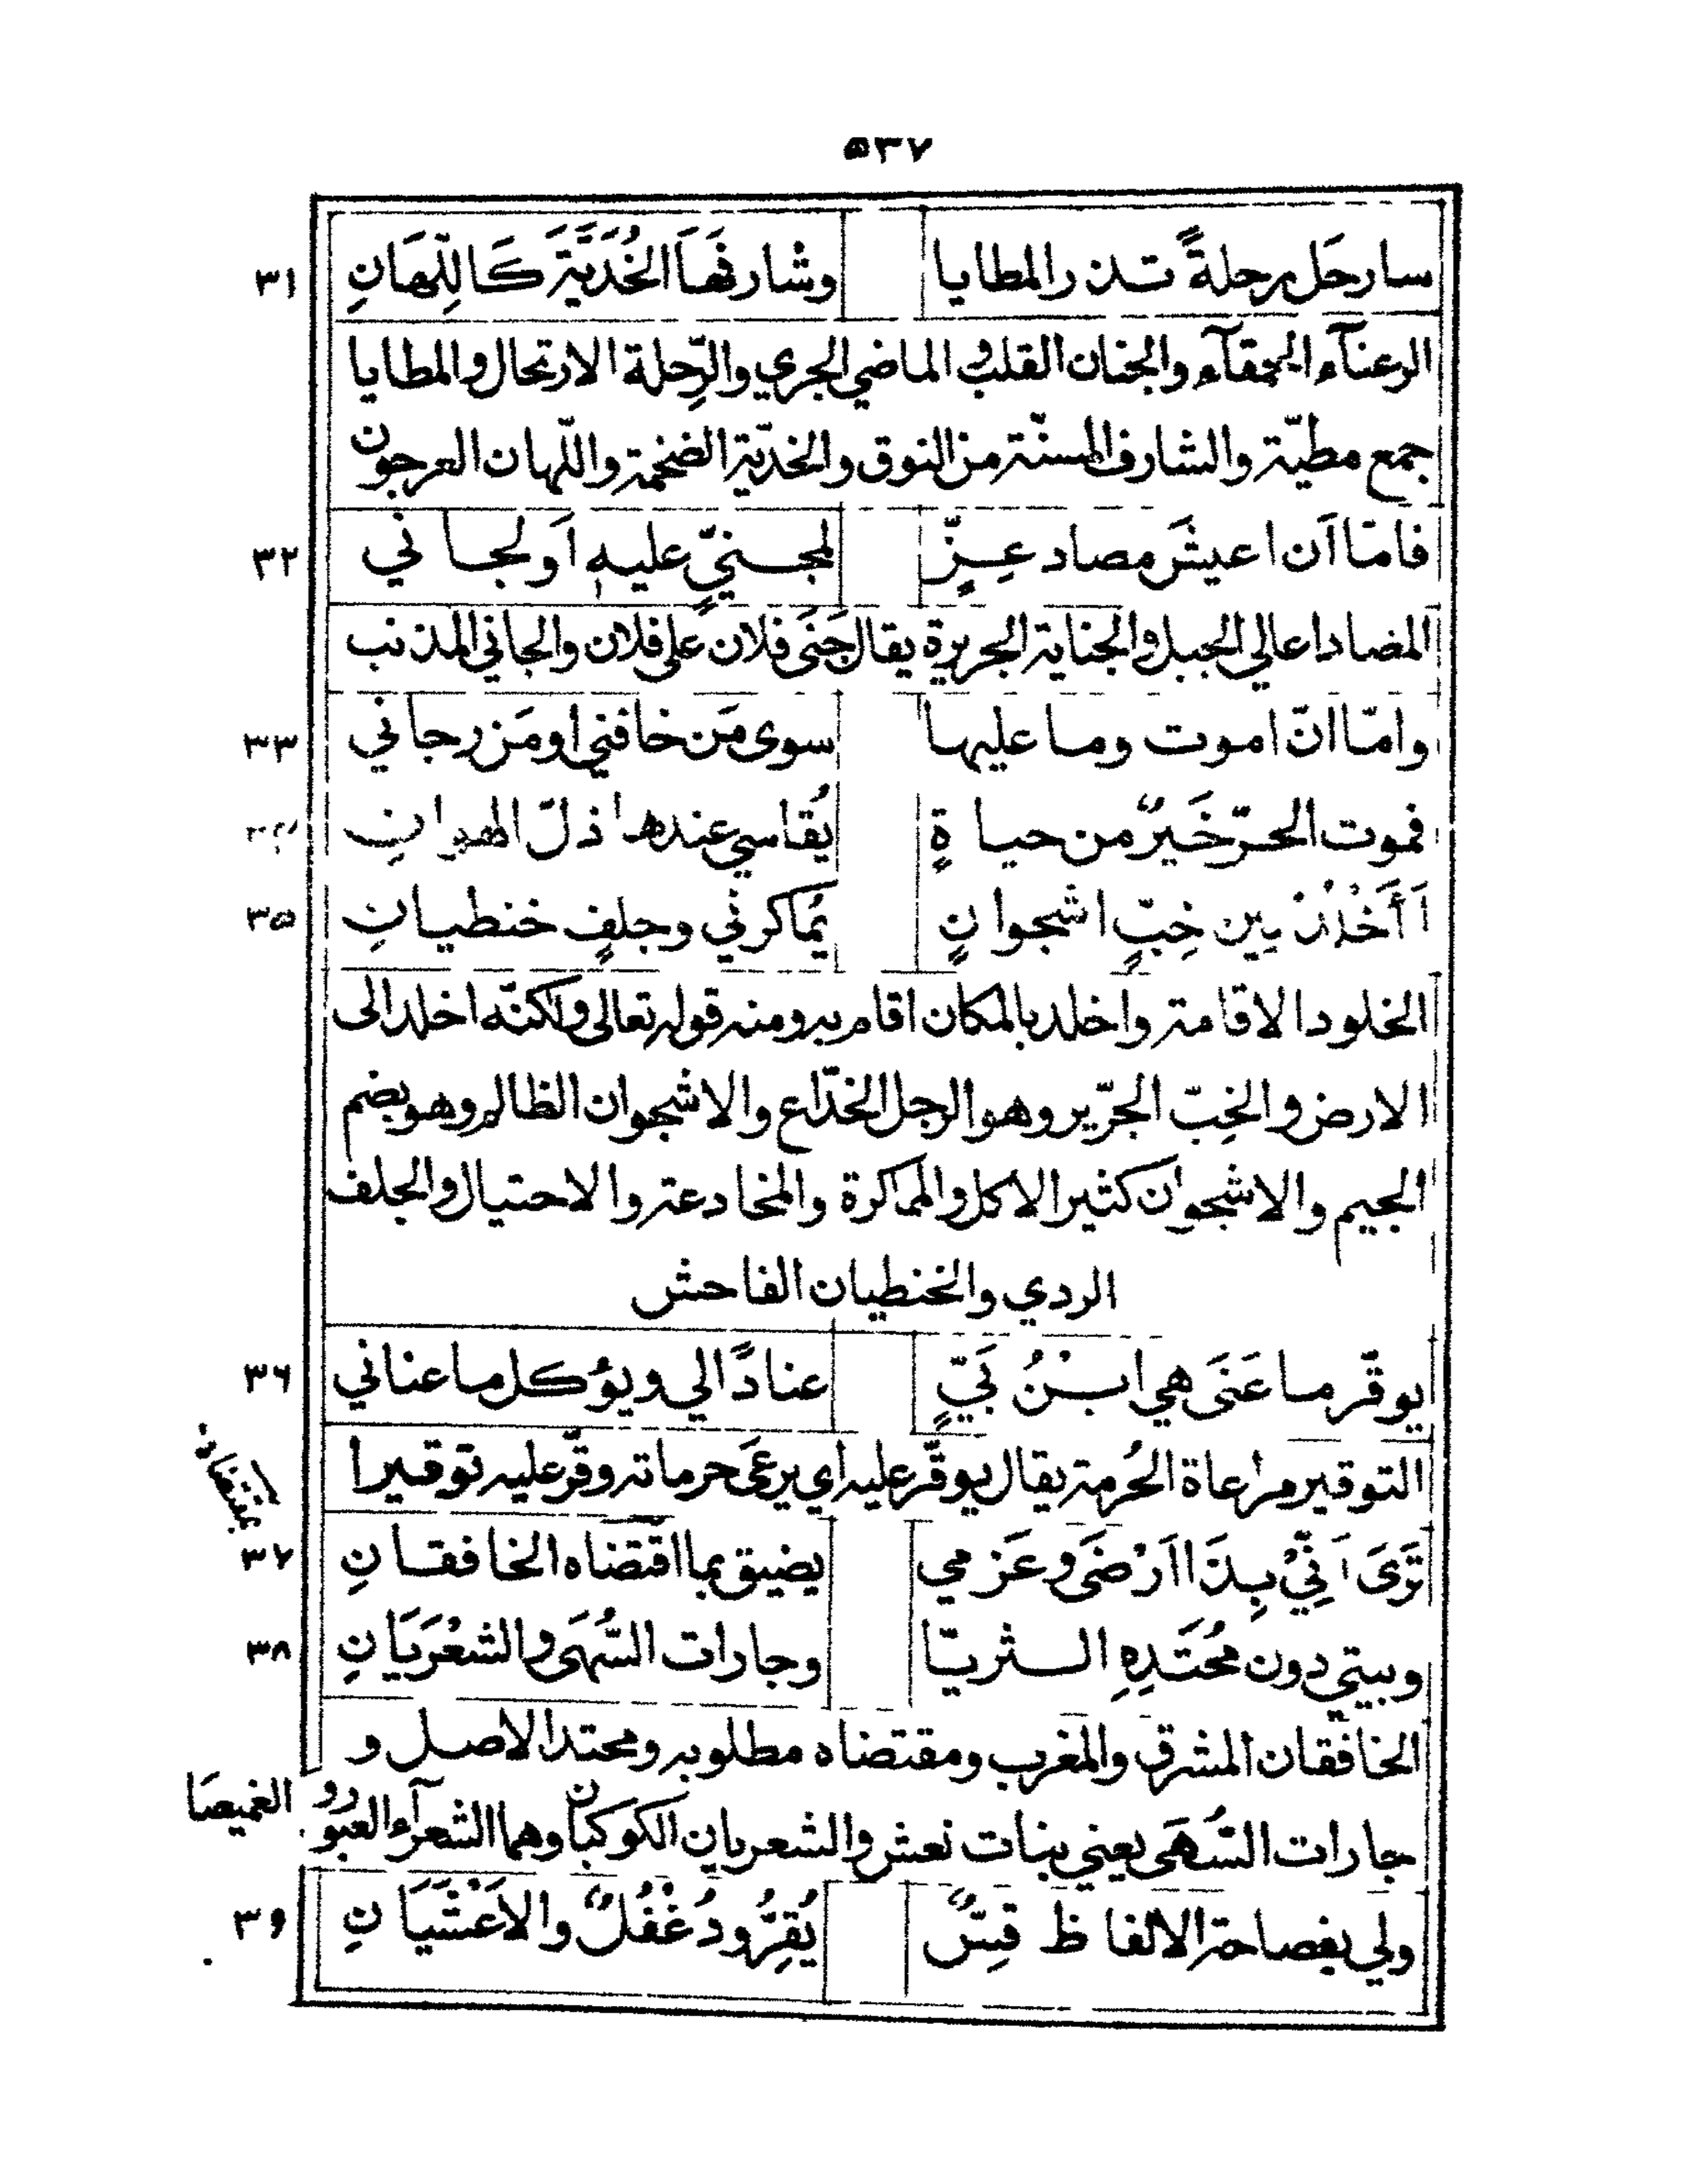 ٥٣٧
سارحَل رحلةً تذر المطايا وشارفَهَا الخُدَيَّةَ كَاللِّهَانِ ٣١
الرعنآء الحمقآء والجنان القلب و الماضي الجري والرِّحلة الارتحال والمطايا
جمع مطيّة والشارف المسنّة من النوق والخديّة الضخمة واللّهان العرجون
فامّا اَن اعيشَ مصاد عِزٍّ لمجنيٍّ عليه اَو لجاني ٣٢
المضاد اعالي الجبل والجناية الجريرة يقال جَنَى فلان على فلان والجاني المذنب
وامّا انّ اموت وما عليها سوى مَن خافني او مَن رجاني ٣٣
فموت الحرّ خَيرٌ من حياةٍ يُقاسي عندها ذلّ الهوانِ
اَأَخْلُدُ بين خِبٍّ اشجوانٍ يُماكرني وجلفٍ خنطيانِ ٣٥
الخلود الاقامة واخلد بالمكان اقام به ومنه قوله تعالى ولكنّه اخلد الى
الارض والخِبّ الجرّير وهو الرجل الخدّاع والاشجوان الظالم وهو بضم
الجيم والاشجوان كثير الاكل والمماكرة والمخادعة والاحتيال والجلف
الردي والخنطيان الفاحش
يوقّر ما عَنَى هي ابْنُ بَيٍّ عنادًا لي ويؤكل ما عناني ٣٦
التوقير مراعاة الحُرمة يقال يوقّر عليه اي يرعَى حرماته وقّر عليه توقيرا
تَرَى اَنِّيْ بِذَا اَرْضَى وعَزمي يضيق بما اقتضاه الخافقانِ ٣٧
وبيتي دون مُحتَدِهِ الثريّا وجارات السُّهَى والشعْرَيَانِ ٣٨
الخافقان المشرق والمغرب ومقتضاه مطلوبه ومحتد الاصل و
جارات السُّهَى يعني بنات نعش والشعريان الكوكبان وهما الشعرآء العبور و الغميصا
ولي بفصاحة الالفاظ قِسٌّ يُقِرُّ ودُغْفُلٌ والاَعْشَيَانِ ٣٩